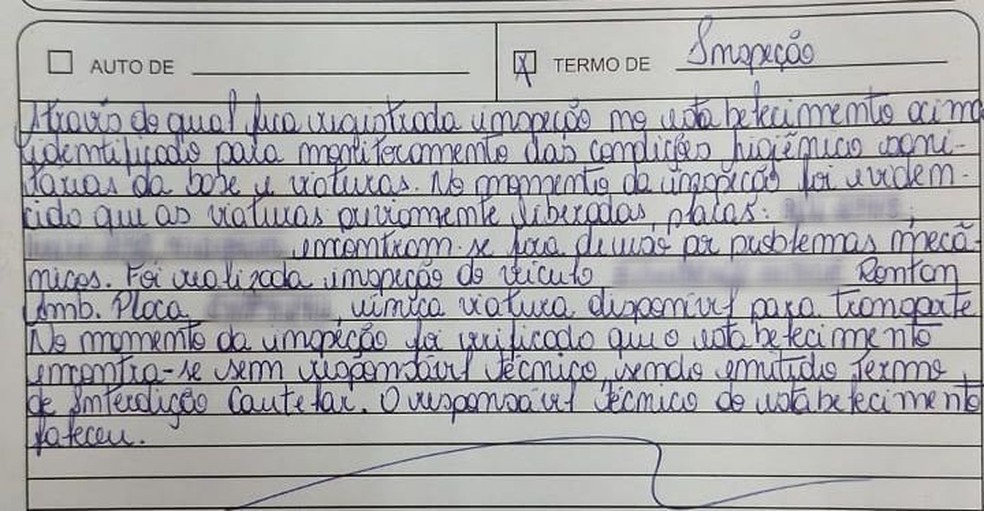 AUTO DE
TERMO DE Inspeção
Através do qual fica registrada inspeção no estabelecimento acima
identificado para monitoramento das condições higiênico sani-
tárias da base e viaturas. No momento da inspeção foi eviden-
cido que as viaturas previamente liberadas placas:
encontram-se fora de uso por problemas mecâ-
nicos. Foi realizada inspeção do veículo Rontan
Amb. Placa , única viatura disponível para transporte
No momento da inspeção foi verificado que o estabelecimento
encontra-se sem responsável técnico, sendo emitido Termo
de Interdição Cautelar. O responsável técnico do estabelecimento
faleceu.